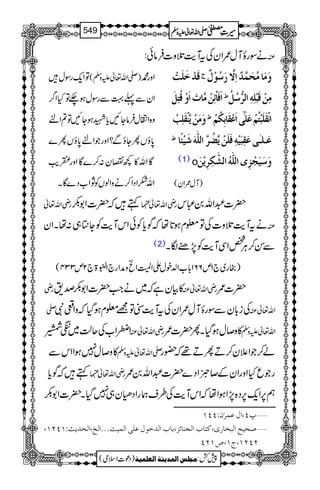 سیرتِ مصطفیٰ صلی اللہ تعالیٰ علیہ وسلم
549
عنہ نے سورۂ آل عمران کی یہ آیت تلاوت فرمائی:
وَمَا مُحَمَّدٌ اِلَّا رَسُوْلٌ ۚ قَدْ خَلَتْ
مِنْ قَبْلِهِ الرُّسُلُ ؕ اَفَاۡىِٕنْ مَّاتَ اَوْ قُتِلَ
انْقَلَبْتُمْ عَلٰۤى اَعْقَابِكُمْ ؕ وَمَنْ یَّنْقَلِبْ
عَلٰى عَقِبَیْهِ فَلَنْ یَّضُرَّ اللّٰهَ شَیْـًٔا ؕ
وَسَیَجْزِی اللّٰهُ الشّٰكِرِیْنَ (1)
(آل عمران)
اور محمد (صلی اللہ تعالیٰ علیہ وسلم) تو ایک رسول ہیں
ان سے پہلے بہت سے رسول ہو چکے تو کیا اگر
وہ انتقال فرما جائیں یا شہید ہو جائیں تو تم الٹے
پاؤں پھر جاؤ گے؟ اور جو الٹے پاؤں پھرے
گا اللہ کا کچھ نقصان نہ کرے گا اور عنقریب
اللہ شکر ادا کرنے والوں کو ثواب دے گا۔
حضرت عبداللہ بن عباس رضی اللہ تعالیٰ عنہما کہتے ہیں کہ حضرت ابوبکر رضی اللہ تعالیٰ
عنہ نے یہ آیت تلاوت کی تو معلوم ہوتا تھا کہ گویا کوئی اس آیت کو جانتا ہی نہ تھا۔ ان
سے سن کر ہر شخص اسی آیت کو پڑھنے لگا۔ (2)
(بخاری ج۱ ص۱۶۶ باب الدخول علی المیت الخ و مدارج النبوۃ ج۲ ص۴۳۳)
حضرت عمر رضی اللہ تعالیٰ عنہ کا بیان ہے کہ میں نے جب حضرت ابوبکر صدیق رضی
اللہ تعالیٰ عنہ کی زبان سے سورۂ آل عمران کی یہ آیت سنی تو مجھے معلوم ہو گیا کہ واقعی نبی صلی
اللہ تعالیٰ علیہ وسلم کا وصال ہو گیا۔ پھر حضرت عمر رضی اللہ تعالیٰ عنہ اضطراب کی حالت میں ننگی شمشیر
لے کر جو اعلان کرتے پھرتے تھے کہ حضور صلی اللہ تعالیٰ علیہ وسلم کا وصال نہیں ہوا اس سے
رجوع کیا اور ان کے صاحبزادے حضرت عبداللہ بن عمر رضی اللہ تعالیٰ عنہما کہتے ہیں کہ گویا
ہم پر ایک پردہ پڑا ہوا تھا کہ اس آیت کی طرف ہمارا دھیان ہی نہیں گیا۔ حضرت ابوبکر
پ۴، ال عمرٰن: ۱۴۴
صحیح البخاری، کتاب الجنائز، باب الدخول علی المیت...الخ، الحدیث: ۱۲۴۱،
۱۲۴۲، ج۱، ص۴۲۱
پیش کش: مجلس المدینۃ العلمیۃ (دعوتِ اسلامی)